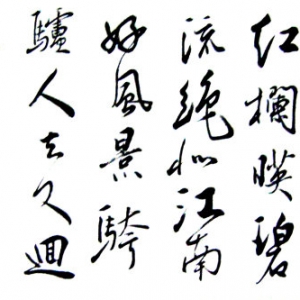 紅欄暎碧
流絶似江南
好風景騎
驢人去久迴